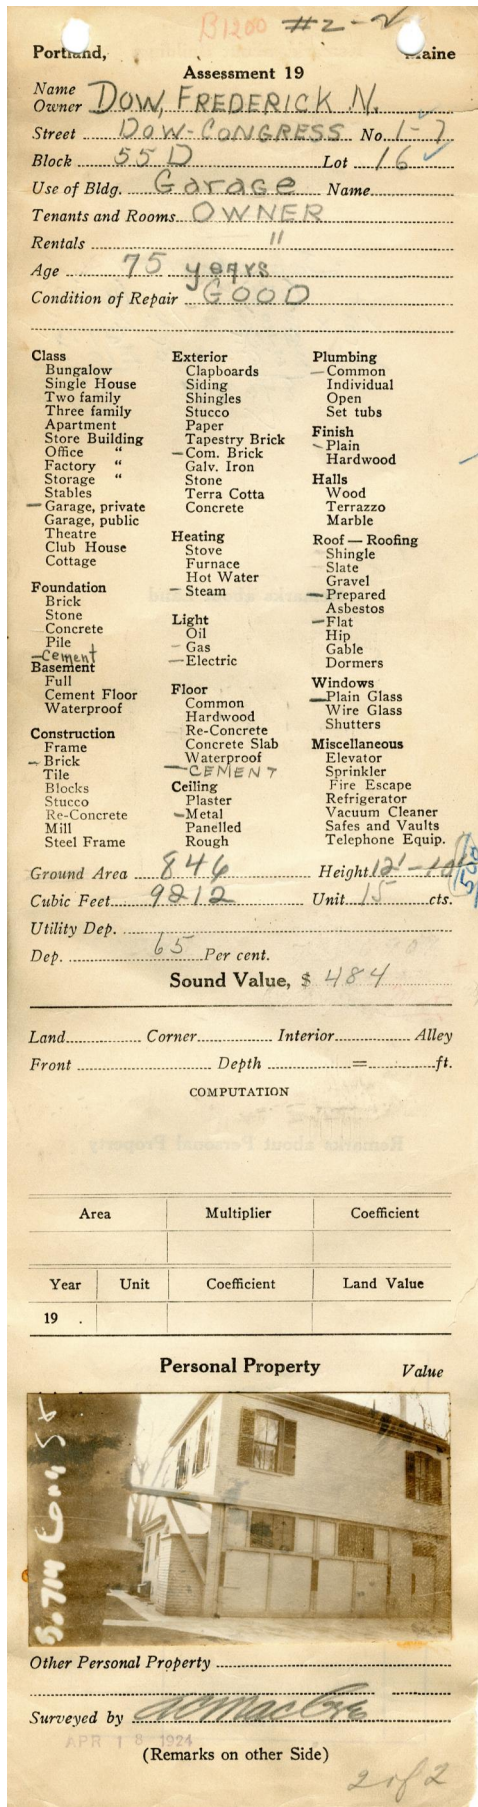 B1200 #2-2
Portland, Maine
Assessment 19
Name
Owner DOW, FREDERICK N.
Street DOW-CONGRESS No. 1-7
Block 55D Lot 16
Use of Bldg. Garage Name
Tenants and Rooms OWNER
Rentals "
Age 75 years
Condition of Repair GOOD
Class
Bungalow
Single House
Two family
Three family
Apartment
Store Building
Office "
Factory "
Storage "
Stables
Garage, private
Garage, public
Theatre
Club House
Cottage
Foundation
Brick
Stone
Concrete
Pile
Cement
Basement
Full
Cement Floor
Waterproof
Construction
Frame
Brick
Tile
Blocks
Stucco
Re-Concrete
Mill
Steel Frame
Exterior
Clapboards
Siding
Shingles
Stucco
Paper
Tapestry Brick
Com. Brick
Galv. Iron
Stone
Terra Cotta
Concrete
Heating
Stove
Furnace
Hot Water
Steam
Light
Oil
Gas
Electric
Floor
Common
Hardwood
Re-Concrete
Concrete Slab
Waterproof
CEMENT
Ceiling
Plaster
Metal
Panelled
Rough
Plumbing
Common
Individual
Open
Set tubs
Finish
Plain
Hardwood
Halls
Wood
Terrazzo
Marble
Roof — Roofing
Shingle
Slate
Gravel
Prepared
Asbestos
Flat
Hip
Gable
Dormers
Windows
Plain Glass
Wire Glass
Shutters
Miscellaneous
Elevator
Sprinkler
Fire Escape
Refrigerator
Vacuum Cleaner
Safes and Vaults
Telephone Equip.
Ground Area 846 Height 12'-10"
Cubic Feet 9212 Unit 15 cts.
Utility Dep.
Dep. 65 Per cent.
Sound Value, $ 484
Land Corner Interior Alley
Front Depth = ft.
COMPUTATION
Area Multiplier Coefficient
Year Unit Coefficient Land Value
19 .
Personal Property Value
714 Cong St
Other Personal Property
Surveyed by
APR 18 1924
(Remarks on other Side)
2 of 2